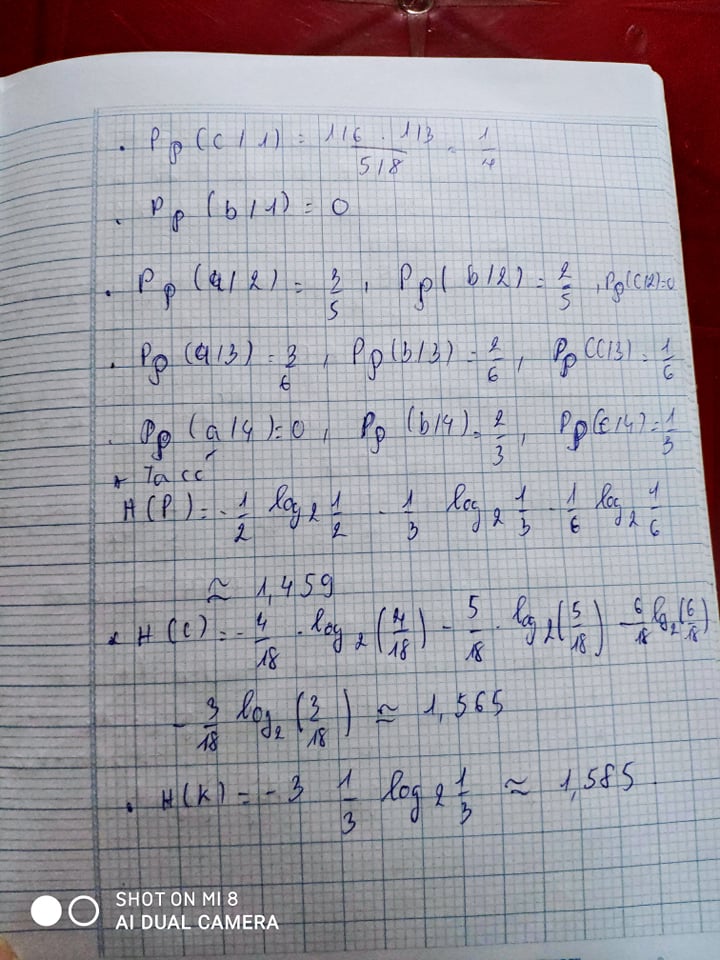 . Pp (c/1) = 1/6 . 1/3 / 5/8 = 1/4
. Pp (b/1) = 0
. Pp (a/2) = 3/5 , Pp (b/2) = 2/5 , Pp(c/2)=0
. Pp (a/3) = 3/6 , Pp(b/3) = 2/6 , Pp(c/3) = 1/6
. Pp (a/4) = 0 , Pp (b/4) = 2/3 , Pp(c/4) = 1/3
H(P) = - 1/2 log2 1/2 - 1/3 log2 1/3 - 1/6 log2 1/6
≈ 1,459
. H(C) = - 4/18 . log2 (4/18) - 5/18 . log2 (5/18) - 6/18 log2 (6/18)
- 3/18 log2 (3/18) ≈ 1,565
. H(K) = - 3 1/3 log2 1/3 ≈ 1,585
SHOT ON MI 8
AI DUAL CAMERA